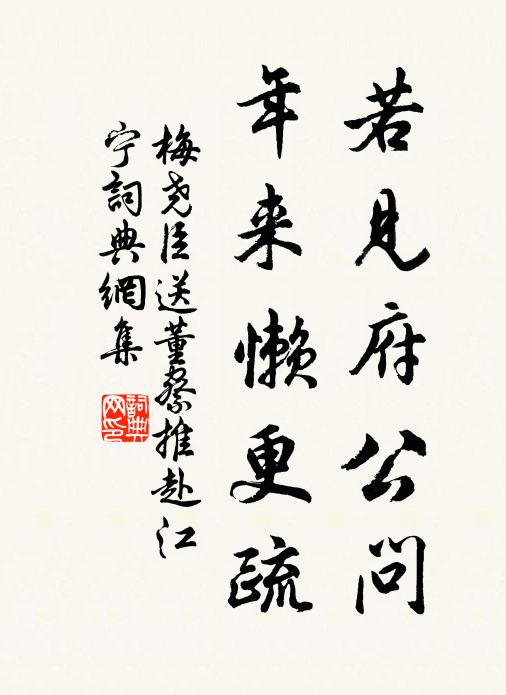 若见府公问
年来懒更疏
梅尧臣送董察推赴江
宁词典網集
詞典网印